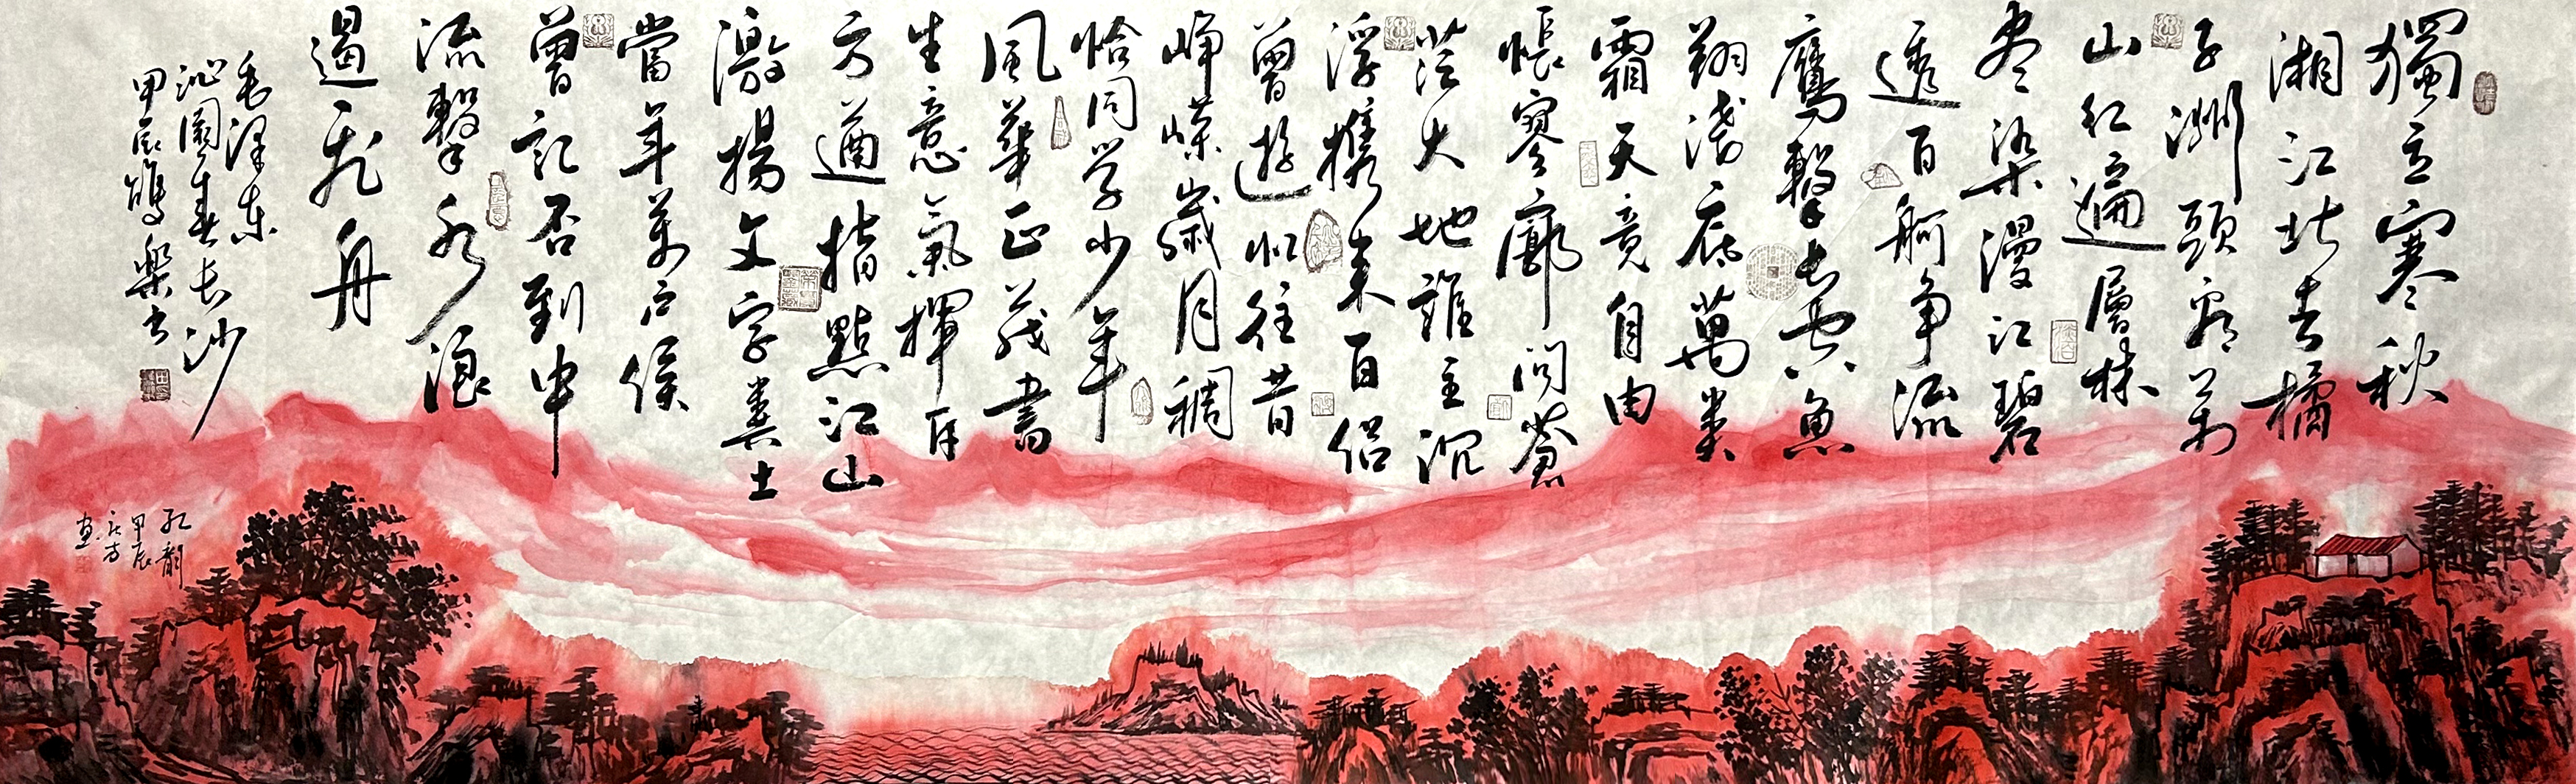 獨立寒秋
湘江北去橘
子洲頭看万
山红遍層林
尽染漫江碧
透百舸争流
鷹擊长空魚
翔浅底萬类
霜天竞自由
悵寥廓問蒼
茫大地誰主沉
浮攜来百侣
曾遊忆往昔
峥嵘歲月稠
恰同学少年
風華正茂書
生意氣揮斥
方遒指點江山
激揚文字粪土
當年万户侯
曾記否到中
流擊水浪
遏飞舟
毛泽东
沁園春长沙
甲辰鴻樂书
孔韵
甲辰
画